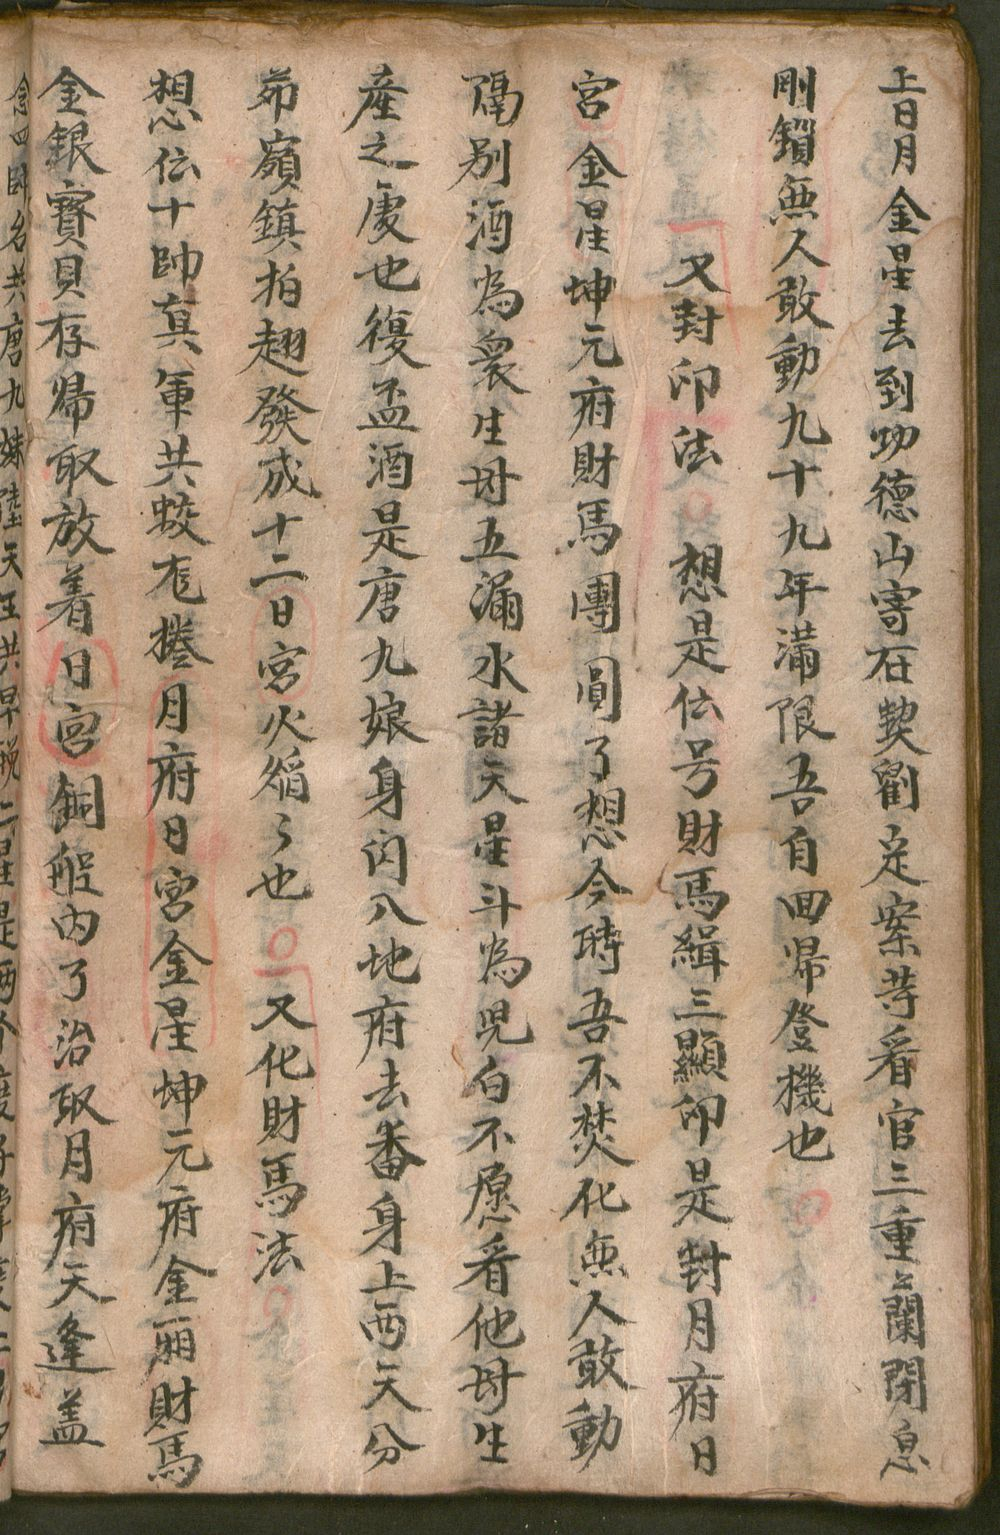 上日月金星去到功德山寄在契劉足案莩看官三重〻蘭閉息
剛鎖無人敢動九十九年滿限吾自回歸登機也
又封印法 想是伝号財馬緝三顯印是封月府日
宮金星坤元府財馬團圓了想今時吾不焚化無人敢動
隔别酒為衆生毋五漏水諸天星斗為児白不愿看他毋生
産之處也復盃酒是唐九娘身闪入地府去番身上西天分
茆嶺鎮拍趐發成十二日宮火熖〻也 又化財馬法
想伝十帥真軍共蛟龙捲月府日宮金星坤元府金厢財馬
金銀寳貝存歸取放着日宮銅船内了治取月府天逢盖
念四帥名共唐九妹陸天王共早